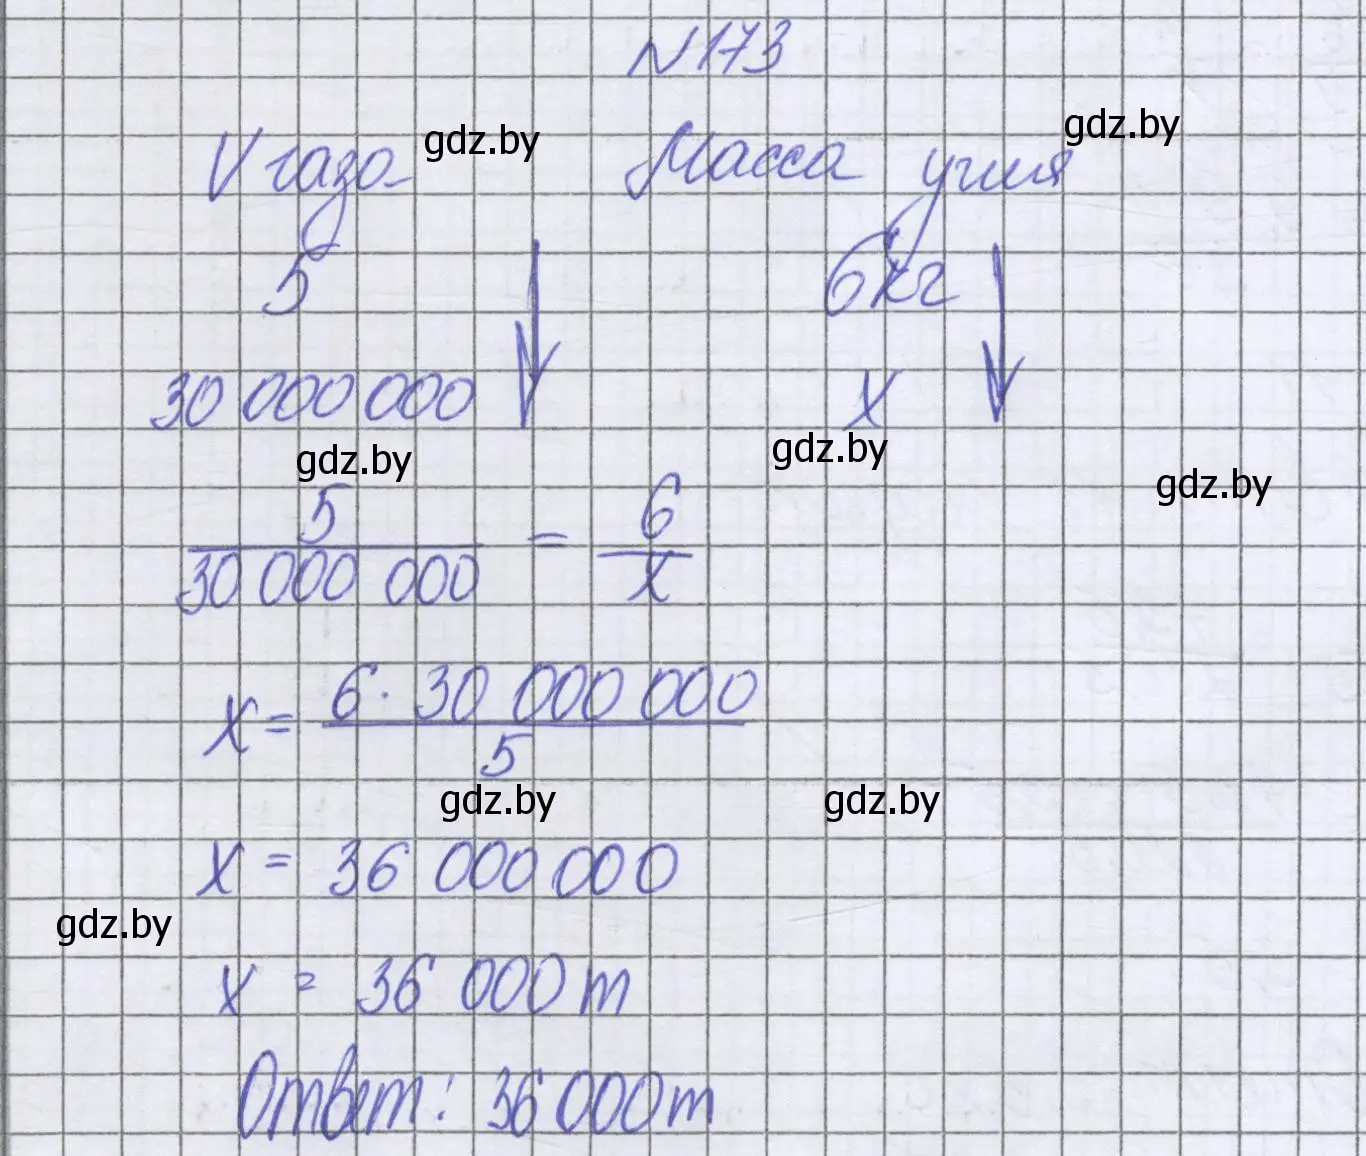 №173
V газа gdz.by Масса угля gdz.by
5 6кг
30 000 000 x
gdz.by gdz.by gdz.by
5/30 000 000 = 6/x
x = 6 · 30 000 000/5
gdz.by gdz.by
x = 36 000 000
gdz.by
x = 36 000 т
Ответ: 36 000т